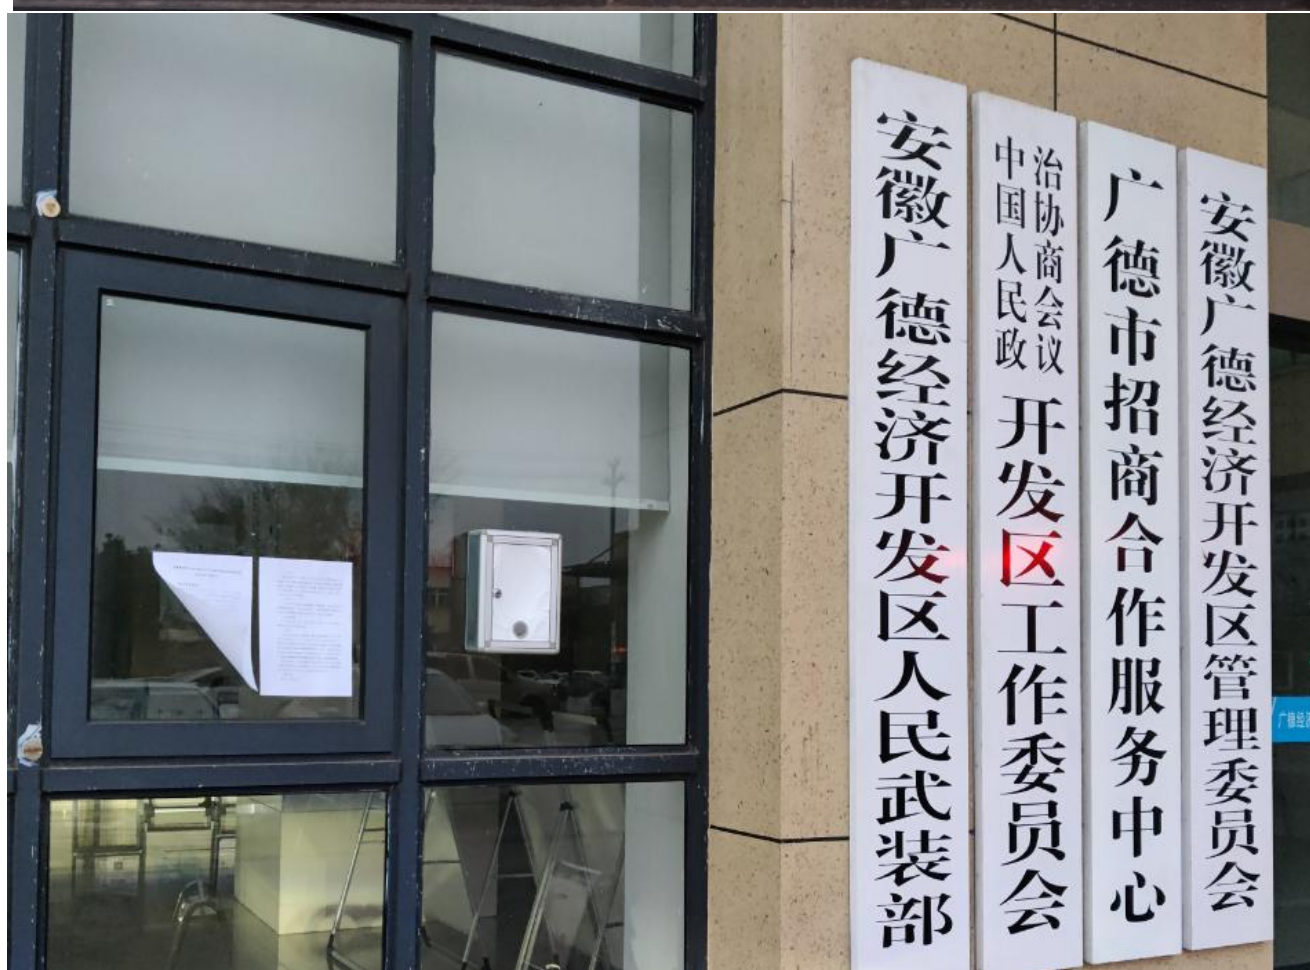 安徽广德经济开发区人民武装部
中国人民政
治协商会议
开发区工作委员会
广德市招商合作服务中心
安徽广德经济开发区管理委员会
广德经济